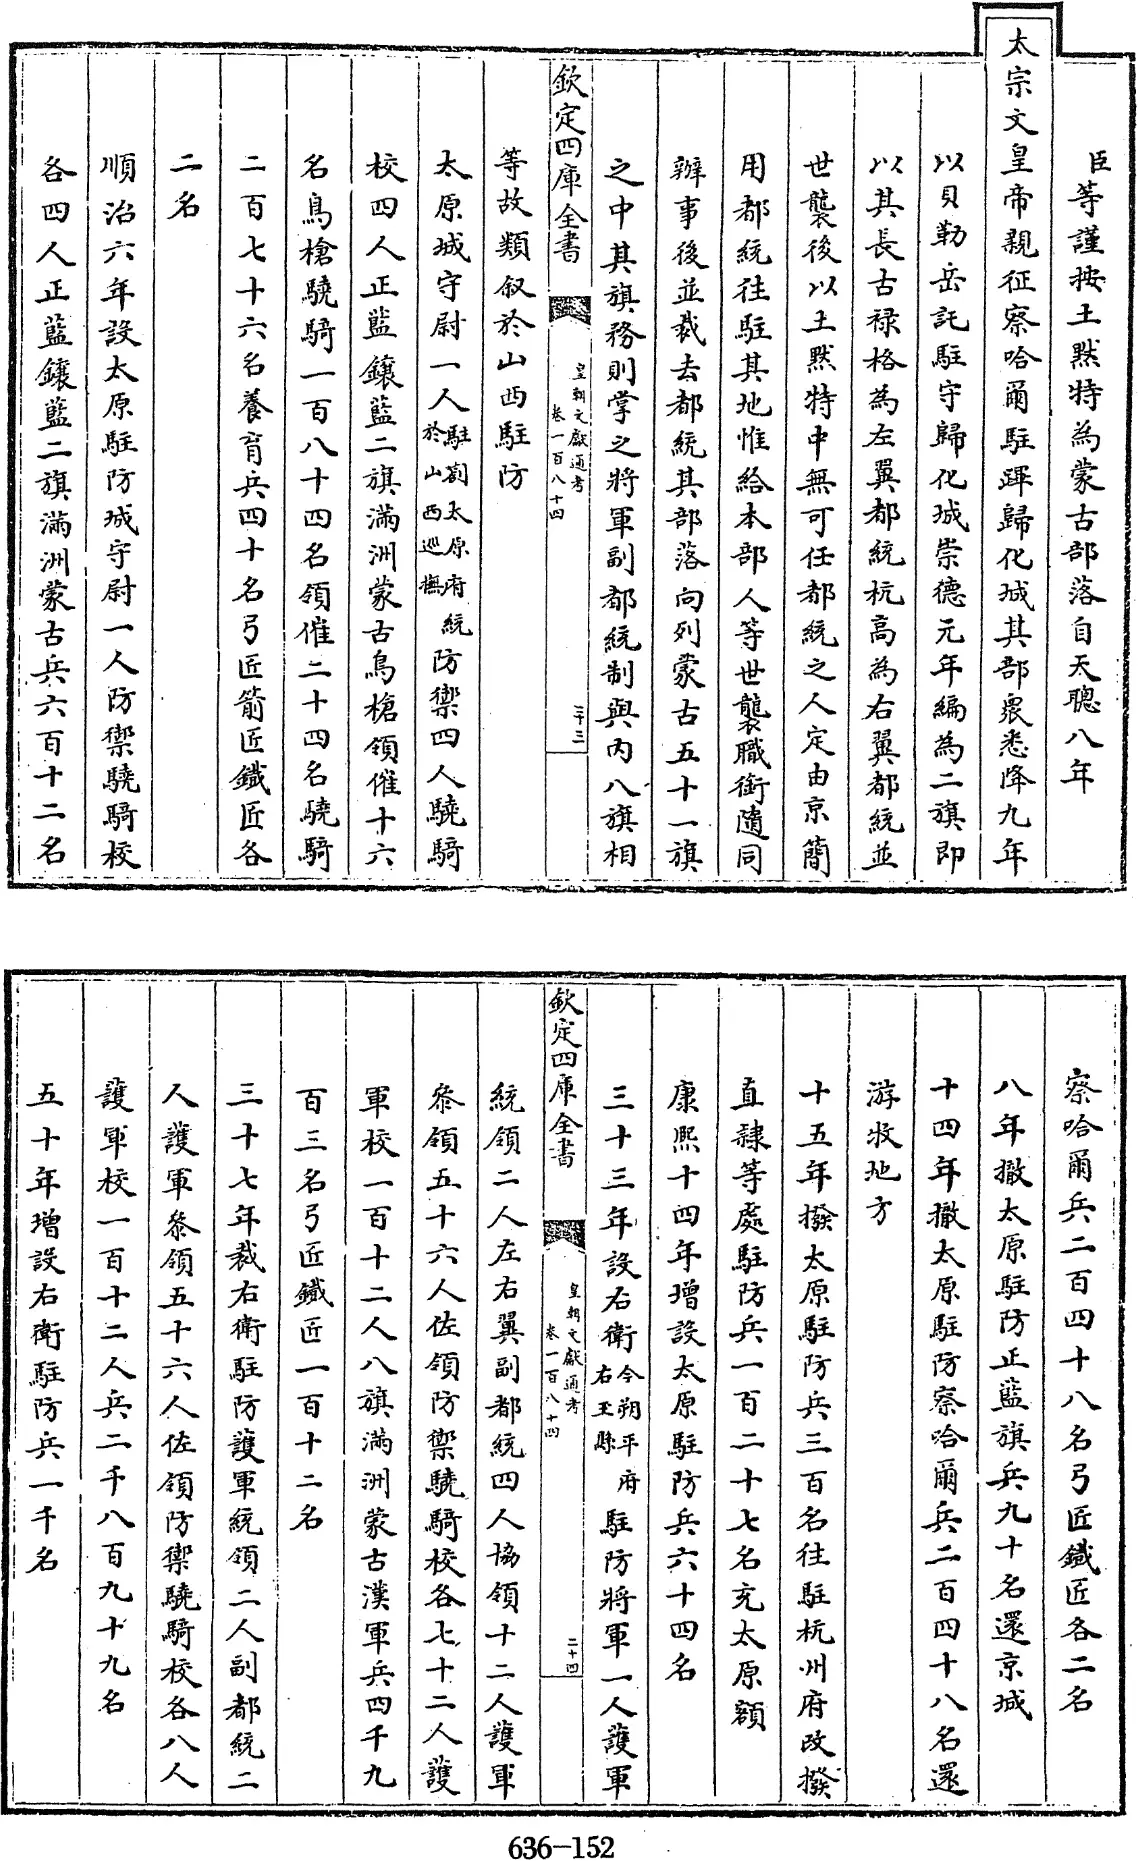 臣等謹按土黙特為蒙古部落自天聰八年
太宗文皇帝親征察哈爾駐蹕歸化城其部衆悉降九年
以貝勒岳託駐守歸化城崇德元年編為二旗即
以其長古禄格為左翼都統杭高為右翼都統並
世襲後以土黙特中無可任都統之人定由京簡
用都統往駐其地惟給本部人等世襲職銜隨同
辦事後並裁去都統其部落向列蒙古五十一旗
之中其旗務則掌之將軍副都統制與内八旗相
欽定四庫全書
皇朝文獻通考
卷一百八十四
二十三
等故類叙於山西駐防
太原城守尉一人駐劄太原府統於山西巡撫防禦四人驍騎
校四人正藍鑲藍二旗滿洲蒙古鳥槍領催十六
名鳥槍驍騎一百八十四名領催二十四名驍騎
二百七十六名養育兵四十名弓匠箭匠鐵匠各
二名
順治六年設太原駐防城守尉一人防禦驍騎校
各四人正藍鑲藍二旗滿洲蒙古兵六百十二名
察哈爾兵二百四十八名弓匠鐵匠各二名
八年撤太原駐防正藍旗兵九十名還京城
十四年撤太原駐防察哈爾兵二百四十八名還
游牧地方
十五年撥太原駐防兵三百名往駐杭州府改撥
直隷等處駐防兵一百二十七名充太原額
康熙十四年增設太原駐防兵六十四名
三十三年設右衛今朔平府右玉縣駐防將軍一人護軍
欽定四庫全書
皇朝文獻通考
卷一百八十四
二十四
統領二人左右翼副都統四人協領十二人護軍
叅領五十六人佐領防禦驍騎校各七十二人護
軍校一百十二人八旗滿洲蒙古漢軍兵四千九
百三名弓匠鐵匠一百十二名
三十七年裁右衛駐防護軍統領二人副都統二
人護軍叅領五十六人佐領防禦驍騎校各八人
護軍校一百十二人兵二千八百九十九名
五十年增設右衛駐防兵一千名
636-152